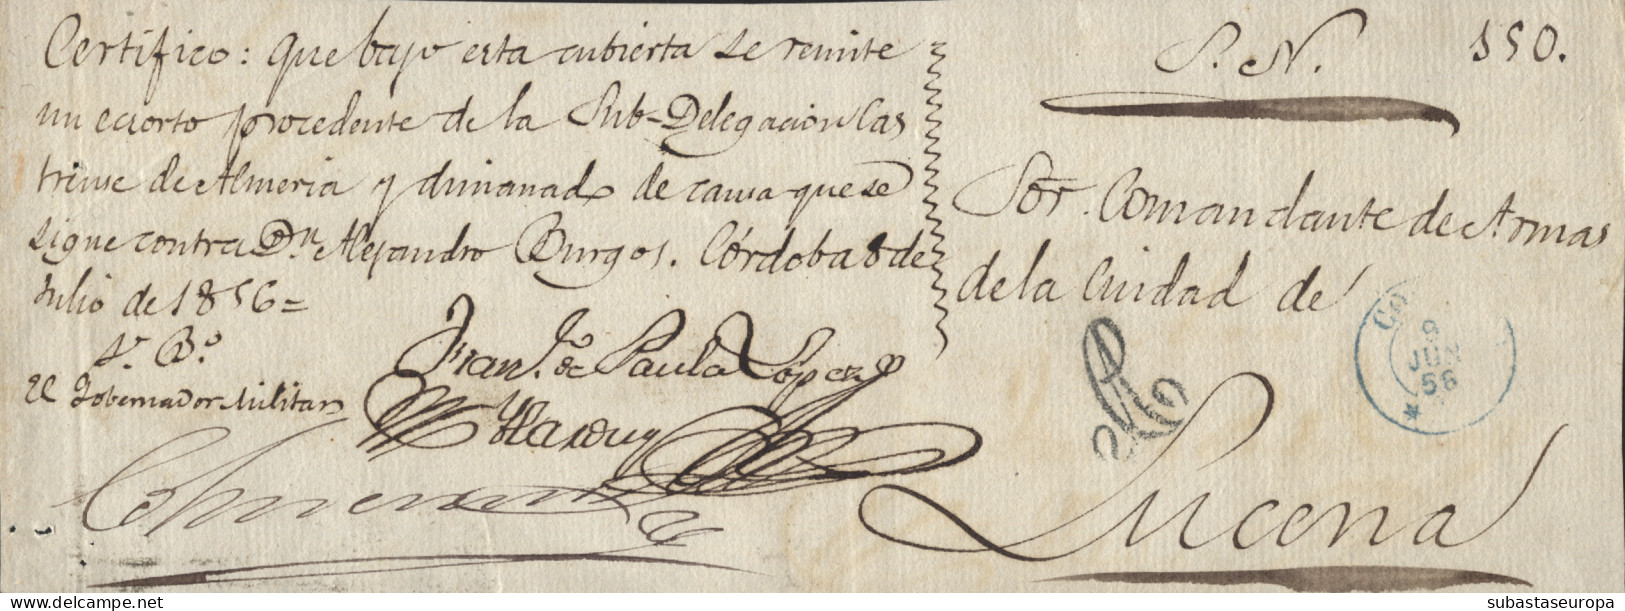 Certifico: que bajo esta cubierta se remite
un ecsorto procedente de la Sub-Delegacion Cas
trense de Almeria y dimanado de causa que se
sigue contra Dn. Alejandro Burgos. Córdoba 8 de
Julio de 1856=
Vº. Bº.
El Gobernador Militar
Fran.co de Paula López
S. N.
150.
Sor. Comandante de Armas
de la Ciudad de
Lucena
9
JUN
56
delcampe.net
subastaseuropa